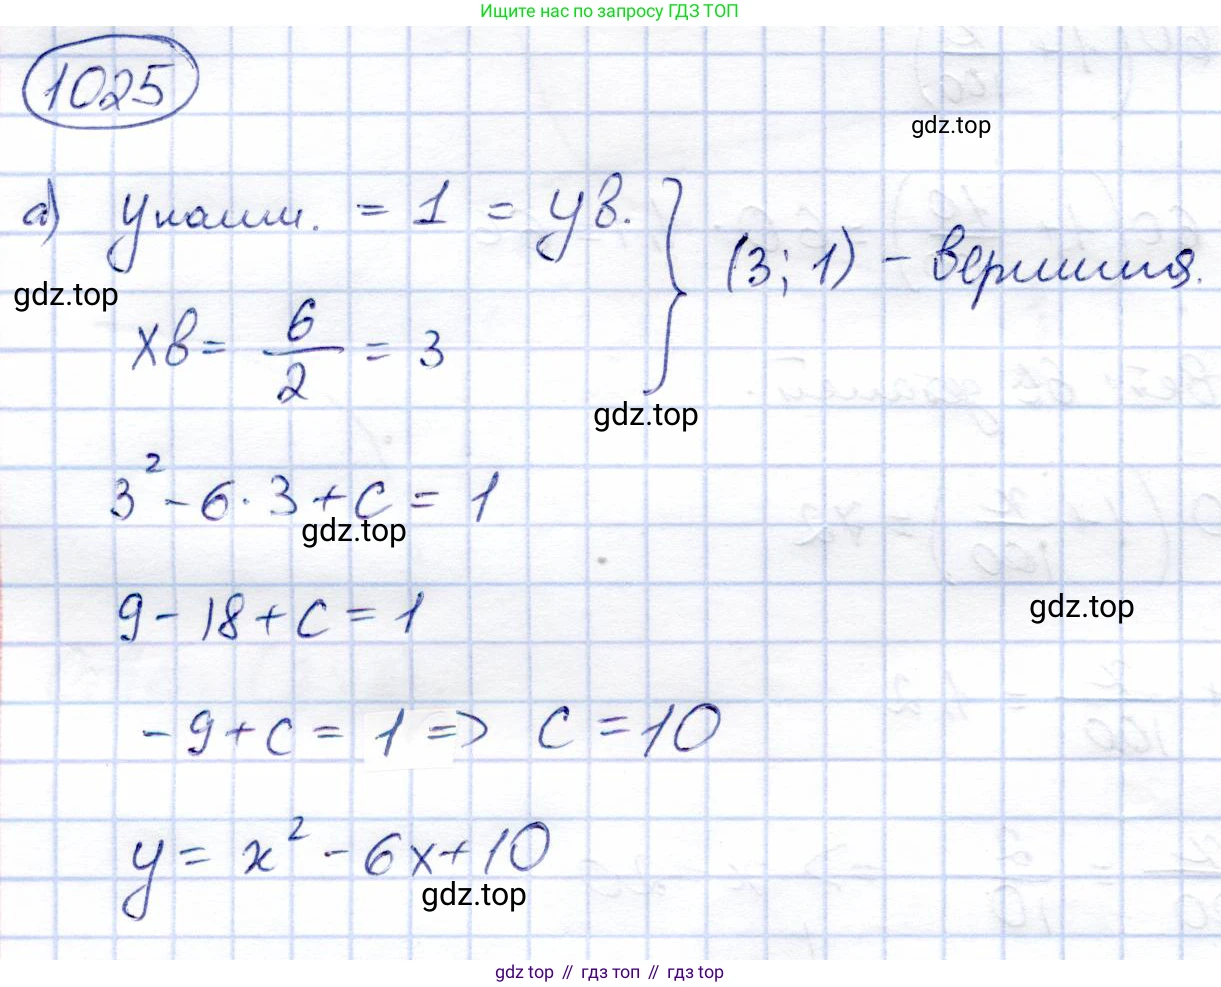 Ищите нас по запросу ГДЗ ТОП
1025
gdz.top
а) y наим. = 1 = yв.
(3; 1) - вершина.
gdz.top
xв = 6/2 = 3
gdz.top
3² - 6 · 3 + c = 1
gdz.top
9 - 18 + c = 1
gdz.top
-9 + c = 1 => c = 10
y = x² - 6x + 10
gdz.top
gdz top // гдз топ // гдз top